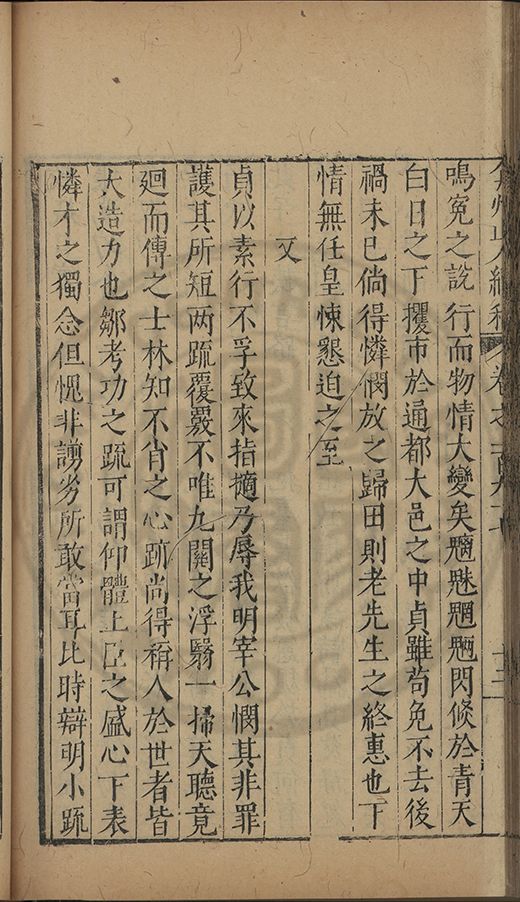 弇州山人續稿 卷之一百九十七 十三
鳴冤之說行而物情大變矣魑魅魍魎閃倐於青天
白日之下攫市於通都大邑之中貞雖苟免不去後
禍未已倘得憐憫放之歸田則老先生之終惠也下
情無任皇悚懇迫之至
又
貞以素行不孚致來指擿乃辱我明宰公憫其非罪
護其所短两疏覆覈不唯九閽之浮翳一掃天聽竟
廻而傳之士林知不肖之心跡尚得稱人於世者皆
大造力也鄒考功之疏可謂仰體上臣之盛心下表
憐才之獨念但愧非譾劣所敢當耳比時辯明小疏